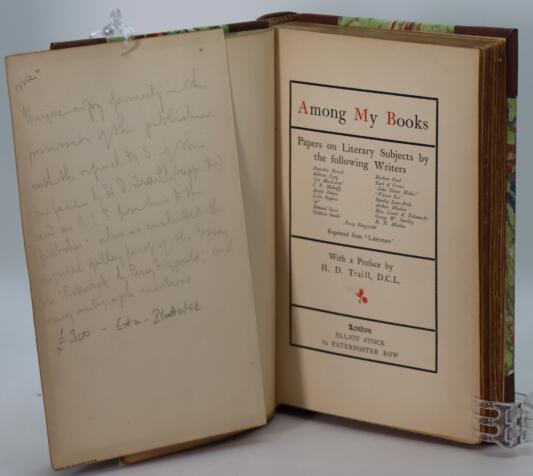 Unique copy formerly in the
possession of the publisher
with the original M.S. of the
preface by H. D. Traill (9 pp. 8vo)
and an A.L.S. from him to the
publisher also is included the
original galley proof of the essay
on Pickwick by Percy Fitzgerald, with
many autograph additions
£300 - Extra-Illustrated
Among My Books
Papers on Literary Subjects by
the following Writers
Augustine Birrell
Andrew Lang
"Ian Maclaren"
J. P. Mahaffy
Austin Dobson
Leslie Stephen
"A"
Edmund Gosse
Goldwin Smith
Herbert Paul
Earl of Crewe
"John Oliver Hobbes"
"Vernon Lee"
Stanley Lane-Poole
Arthur Machen
Hon. Lionel A. Tollemache
George W. Smalley
D. H. Madden
Percy Fitzgerald
Reprinted from "Literature"
With a Preface by
H. D. Traill, D.C.L.
London
ELLIOT STOCK
62 PATERNOSTER ROW